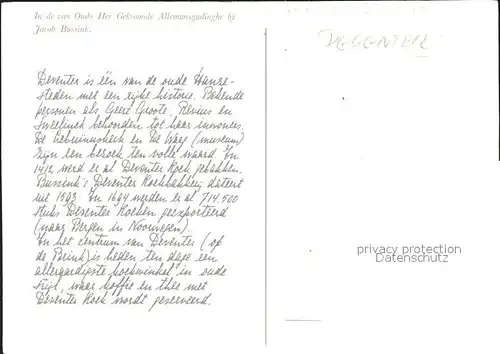 In de van Ouds Her Gekroonde Allemansgadinghe bij
Jacob Bussink.
DEVENTER
Deventer is één van de oude Hanze-
steden met een rijke historie. Bekende
personen als Geert Groote, Revius en
Sweelinck behoorden tot haar inwoners.
De Lebuinuskerk en De Waag (museum)
zijn een bezoek ten volle waard. In
1412 werd er al Deventer Koek gebakken.
Bussink's Deventer Koekbakkerij dateert
uit 1593. In 1694 werden er al 714.500
stuks Deventer Koeken geëxporteerd
(naar Bergen in Noorwegen).
In het centrum van Deventer (op
de Brink) is heden ten dage een
allergardigste koekwinkel in oude
stijl, waar koffie en thee met
Deventer Koek wordt geserveerd.
privacy protection
Datenschutz